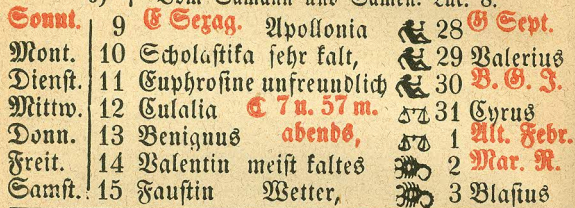 Sonnt. 9 E Sexag. Apollonia 28 G Sept.
Mont. 10 Scholastika sehr kalt, 29 Valerius
Dienst. 11 Euphrosine unfreundlich 30 B. G. J.
Mittw. 12 Eulalia ☾ 7 u. 57 m. 31 Cyrus
Donn. 13 Benignus abends, 1 Alt. Febr.
Freit. 14 Valentin meist kaltes 2 Mar. R.
Samst. 15 Faustin Wetter, 3 Blasius